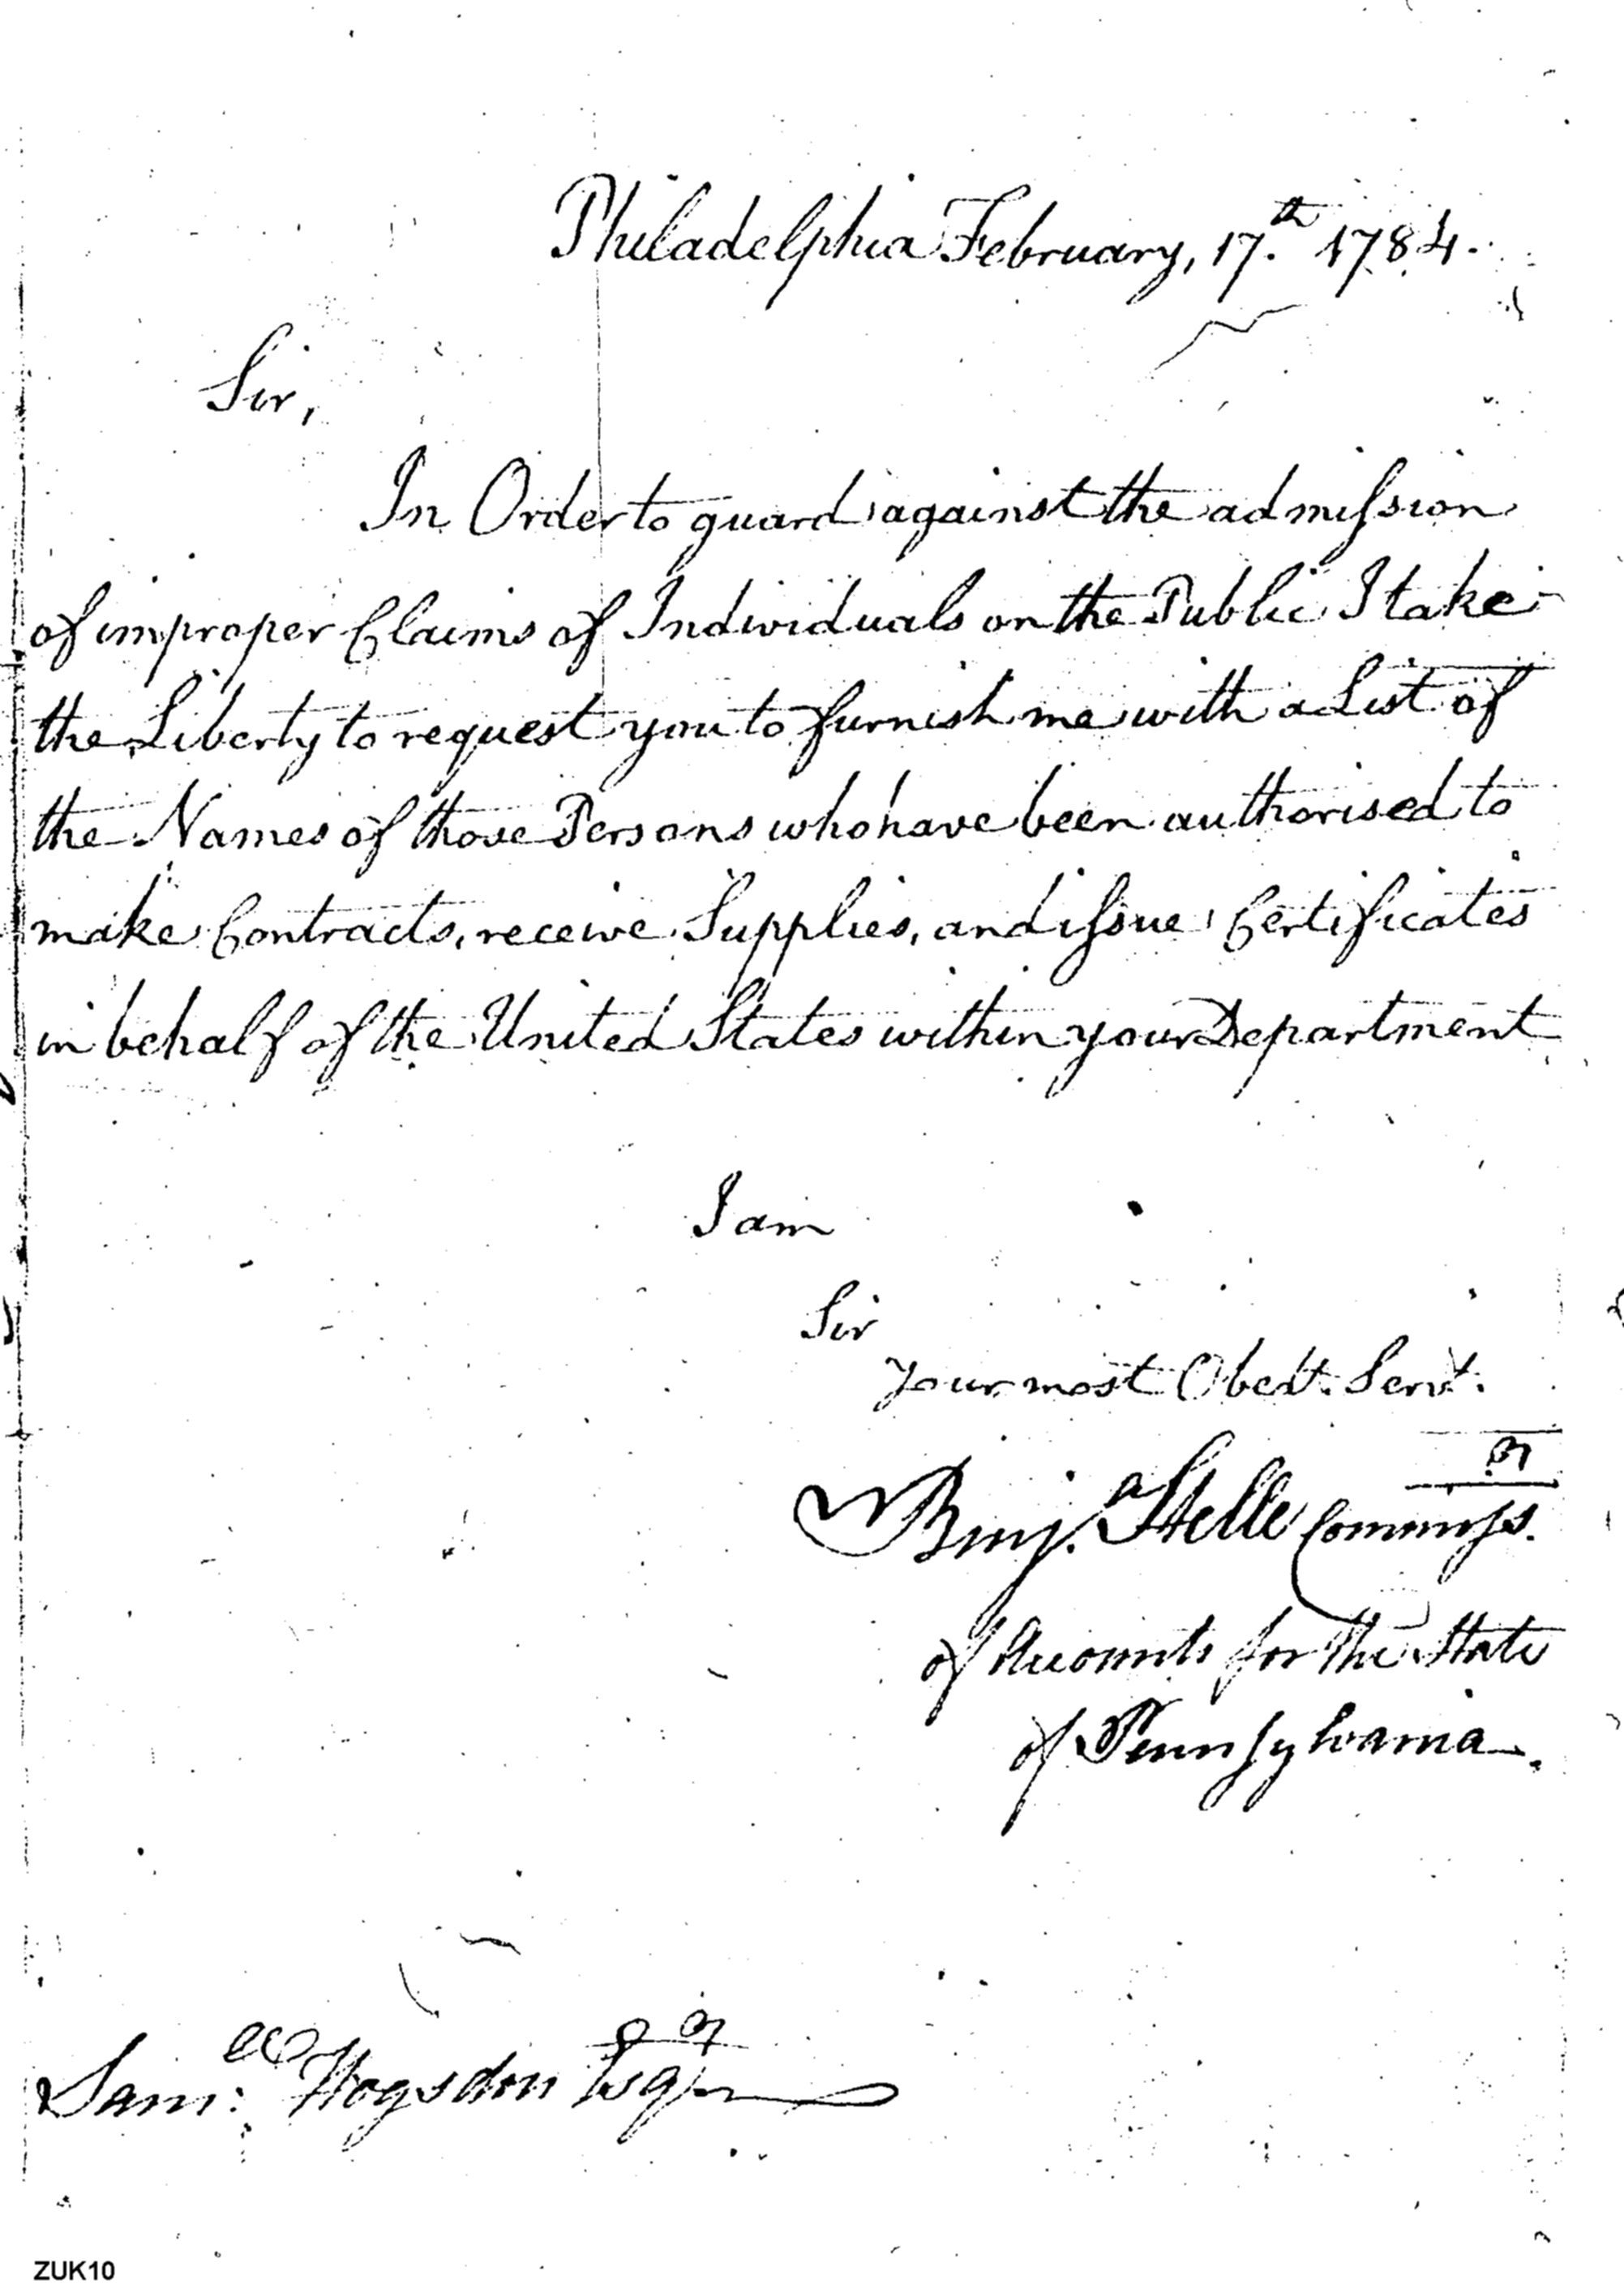 Philadelphia February, 17.th 1784.
Sir,
In Order to guard against the admission
of improper Claims of Individuals on the Public I take
the Liberty to request you to furnish me with a List of
the Names of those Persons who have been authorised to
make Contracts, receive Supplies, and issue Certificates
in behalf of the United States within your Department
I am
Sir
Your most Obedt. Servt.
Benj.a Stelle Commissr.
of Accounts for the State
of Pennsylvania.
Saml. Hogsdon Esqr
ZUK10